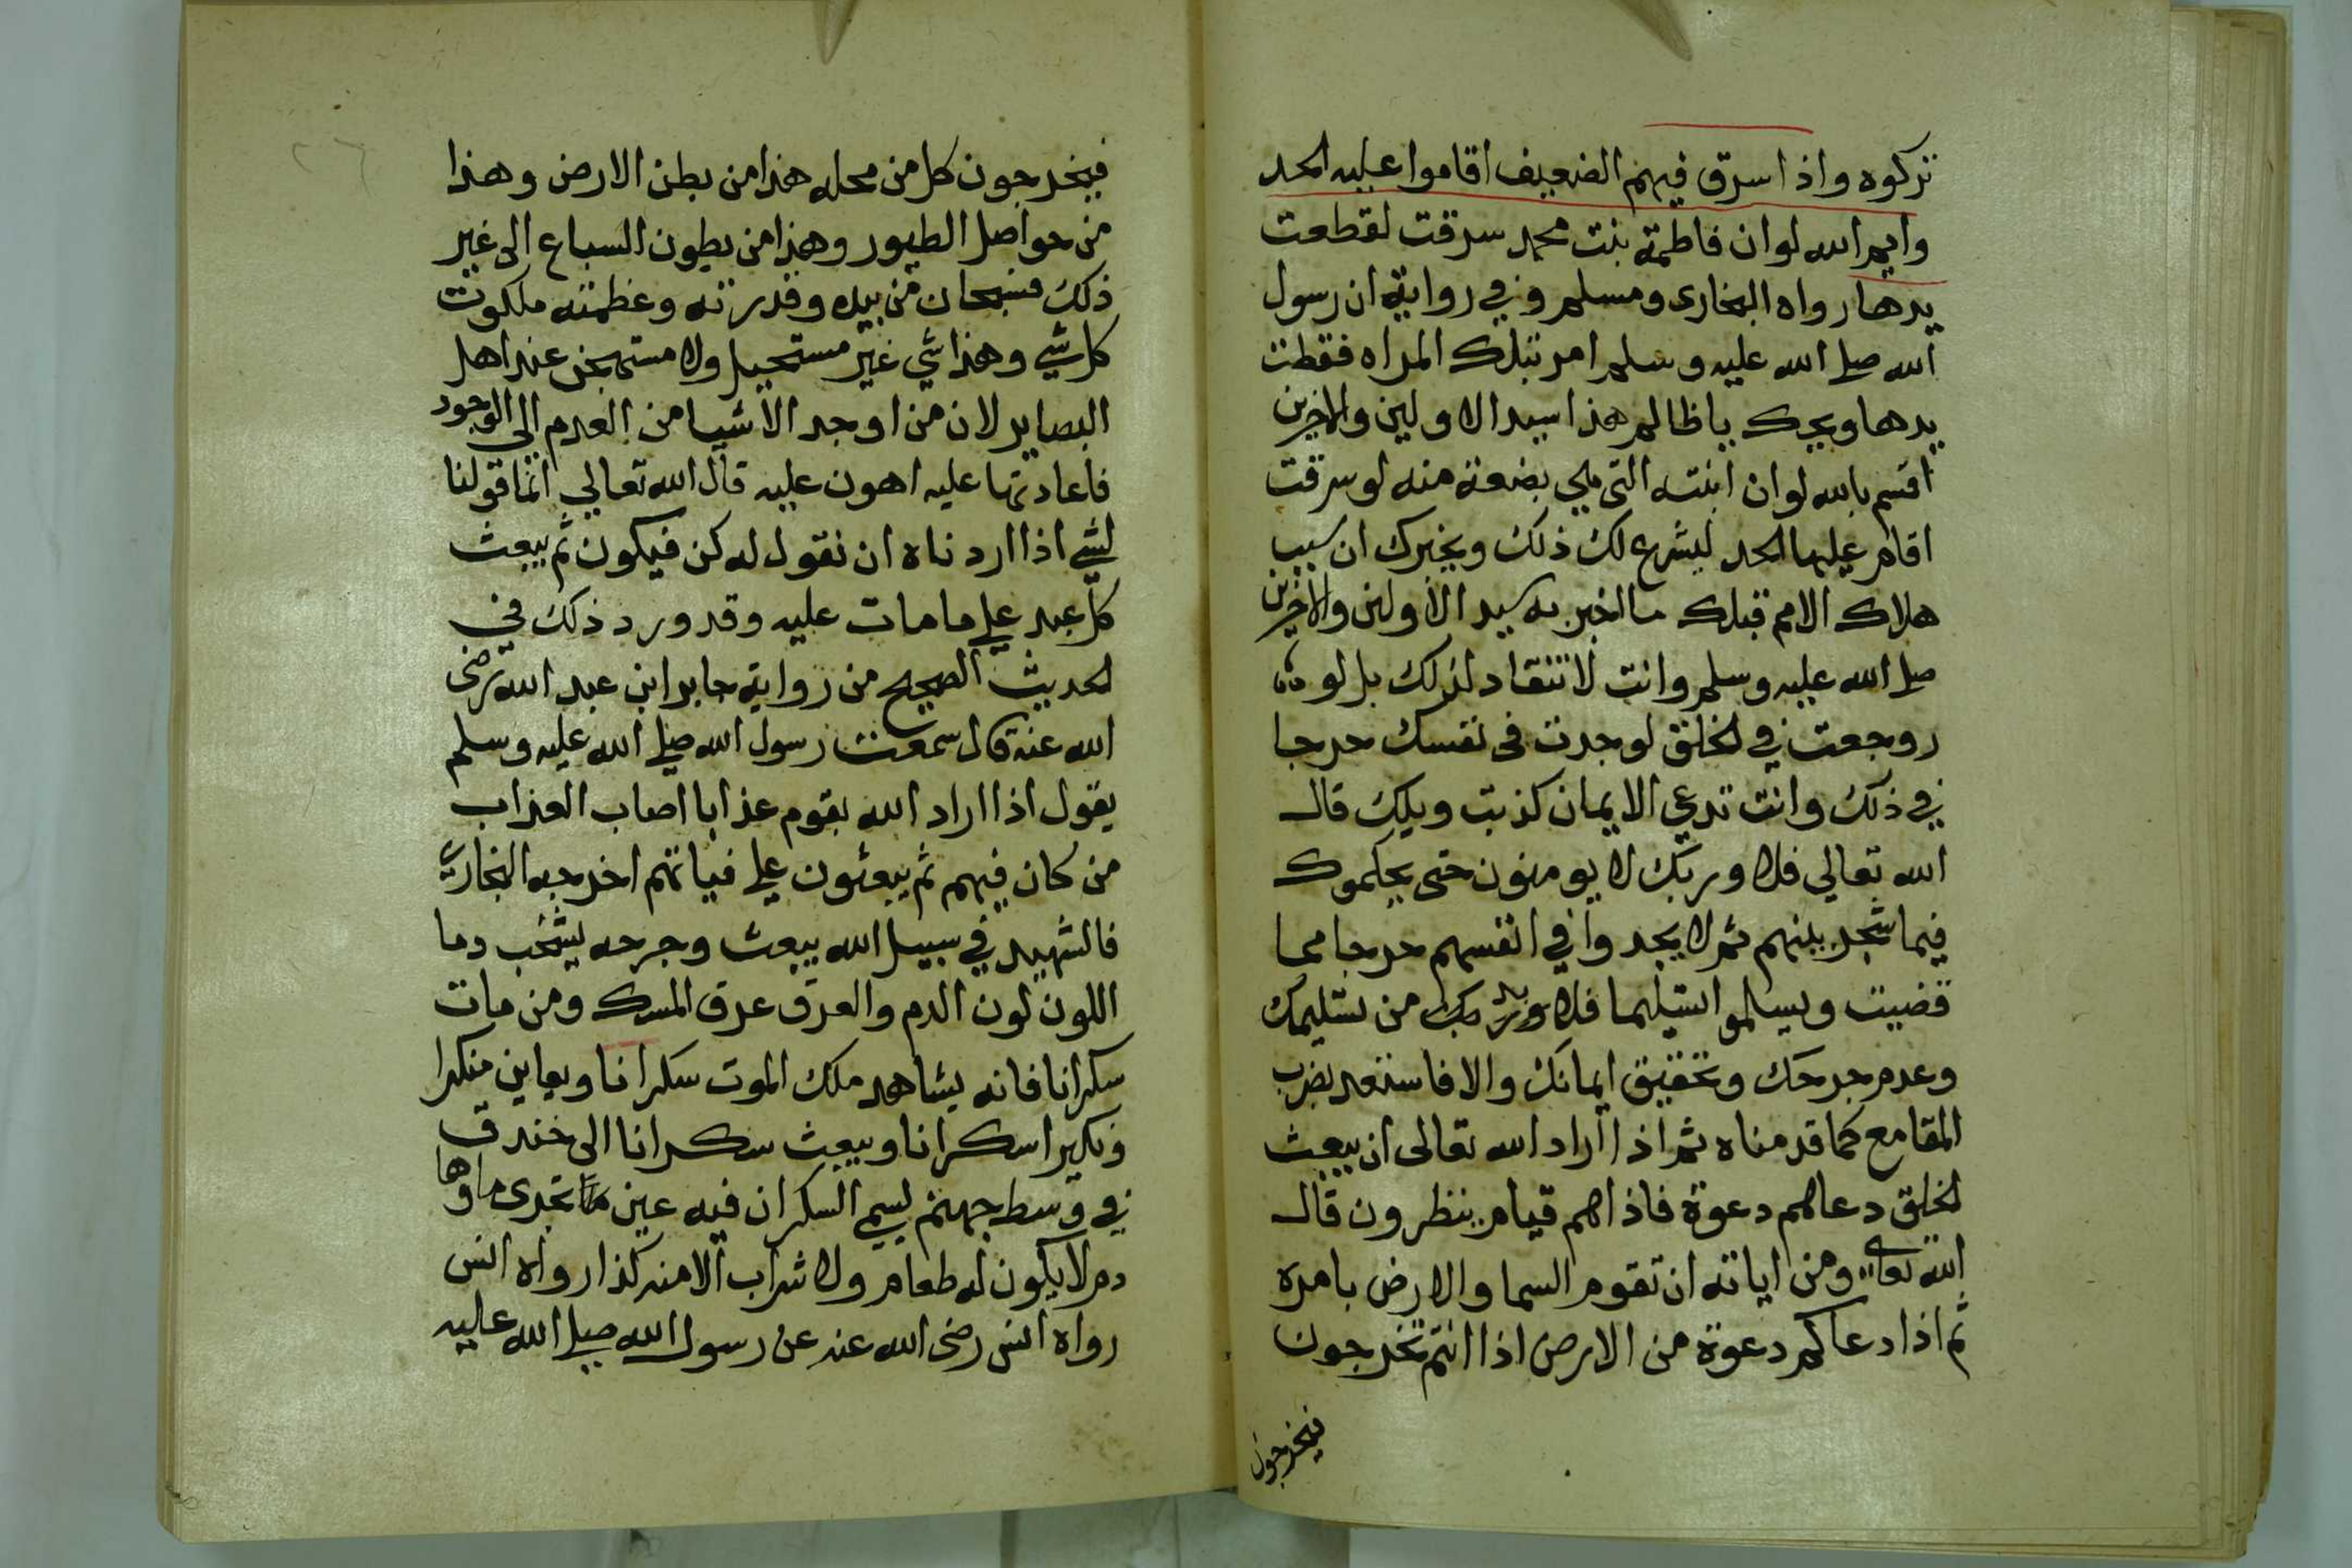 تركوه واذا سرق فيهم الضعيف اقاموا عليه الحد
وايم الله لو ان فاطمة بنت محمد سرقت لقطعت
يدها رواه البخارى ومسلم وفي رواية ان رسول
الله صلي الله عليه وسلم امر بتلك المراه فقطت
يدها ويحك يا ظالم هذا سيد الاولين والاخرين
اقسم بالله لو ان ابنته التى هي بضعة منه لو سرقت
اقام عليها الحد ليشرع لك ذلك ويخبرك ان سبب
هلاك الامم قبلك ما اخبر به سيد الاولين والاخرين
صلي الله عليه وسلم وانت لا تنقاد لذلك بل لو
روجعت في الخلق لوجدت فى نفسك حرجا
في ذلك وانت تدعي الايمان كذبت ويلك قال
الله تعالي فلا وربك لا يومنون حتى يحكموك
فيما شجر بينهم ثم لا يجدوا في انفسهم حرجا مما
قضيت ويسلموا تسليما فلا وربك من تسليمك
وعدم حرجك وتحقيق ايمانك والا فاستعد بضرب
المقامع كما قدمناه ثم اذا اراد الله تعالى ان يبعث
الخلق دعاهم دعوة فاذاهم قيام ينظرون قال
الله تعالى ومن اياته ان تقوم السما والارض بامره
ثم اذا دعاكم دعوة من الارض اذا انتم تخرجون
فيخرجون
٢٦
فيخرجون كل من محله هذا من بطن الارض وهذا
من حواصل الطيور وهذا من بطون السباع الى غير
ذلك فسبحان من بيده وقدرته وعظمته ملكوت
كل شي وهذا شي غير مستحيل ولا مستهجن عند اهل
البصاير لان من اوجد الاشيا من العدم الي الوجود
فاعادتها عليه اهون عليه قال الله تعالي انما قولنا
لشي اذا اردناه ان نقول له كن فيكون ثم يبعث
كل عبد علي ما مات عليه وقد ورد ذلك في
الحديث الصحيح من رواية جابر ابن عبد الله رضى
الله عنه قال سمعت رسول الله صلي الله عليه وسلم
يقول اذا اراد الله بقوم عذابا اصاب العذاب
من كان فيهم ثم يبعثون علي نياتهم اخرجه البخاري
فالشهيد في سبيل الله يبعث وجرحه يشخب دما
اللون لون الدم والعرق عرق المسك ومن مات
سكرانا فانه يشاهد ملك الموت سكرانا ويعاين منكرا
ونكيرا سكرانا ويبعث سكرانا الى خندق
في وسط جهنم يسمي السكران فيه عين تجرى ماوها
دم لا يكون له طعام ولا شراب الا منه كذا رواه انس
رواه انس رضى الله عنه عن رسول الله صلي الله عليه